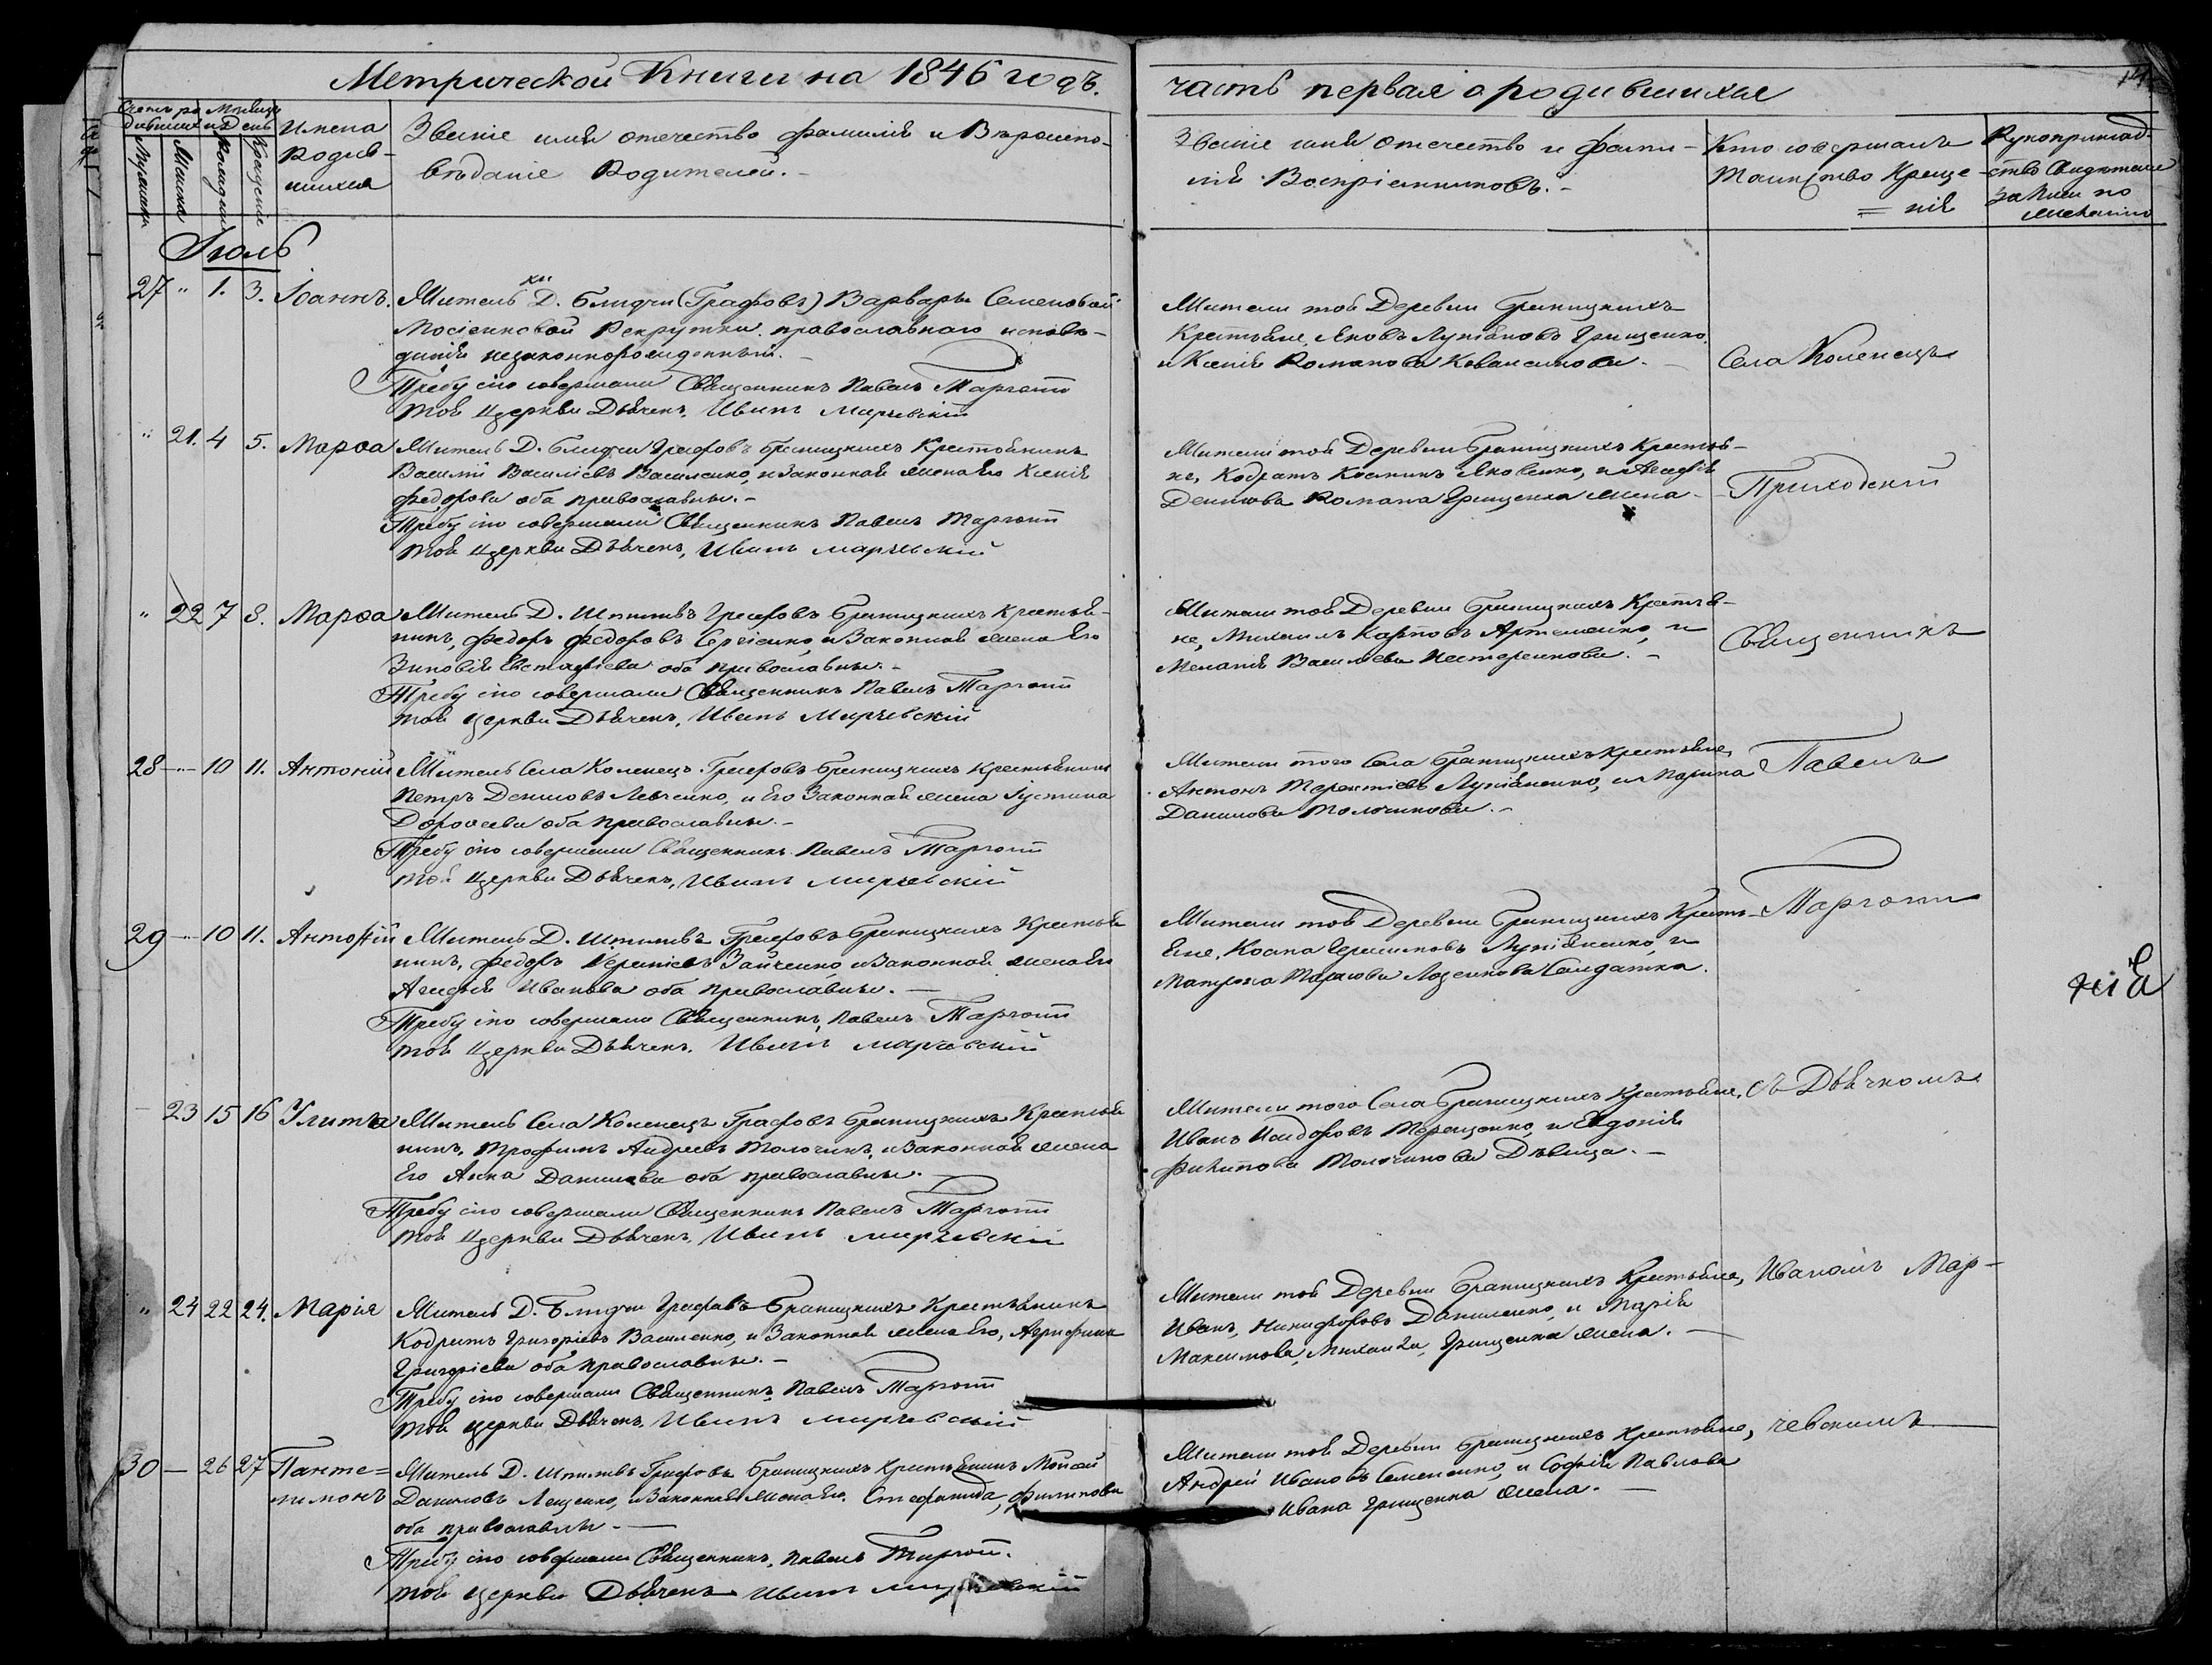 Метрической Книги на 1846 годъ.
часть первая о родившихся
14
Счетъ ро
дившихся
Мужеска
Женска
Месяцъ
и День
Рожденія
Крещенія
Имена
Родив-
шихся
Званіе имя отечество фамилія и Вѣроиспо-
вѣданіе Родителей.-
Званіе имя отечество и фами-
лія Воспріемниковъ.-
Кто совершалъ
Таинство Креще-
= нія
Рукоприклад-
ство Свидѣтелей
записи по
желанію
Іюль
27 " 1. 3. Іоаннъ. Житель Д. Блидчи (Графовъ) Варвары Семеновой
Мосіенковой Рекрутки православнаго исповѣ-
данія незаконнорожденный.
Требу сію совершали Священникъ Павелъ Маргопп
той Церкви Дьячекъ, Иванъ Марчевскій
Жители той Деревни Браницкихъ
Крестьяне, Яковъ Лукіановъ Грищенко,
и Ксенія Романова
Села Коленецъ
" 21. 4 5. Марѳа Житель Д. Блидчи Графовъ Браницкихъ Крестьянинъ
Василій Василіевъ Василенко, и Законная жена Его Ксенія
Федорова оба православны.-
Требу сію совершали Священникъ Павелъ
той Церкви Дьячекъ, Иванъ Марчевскій
Жители той Деревни Браницкихъ Крестья-
не, Кодратъ Косминъ Яковенко, и Агафія
Денисова Романа Грищенка жена-
Приходскій
" 22 7 8. Марѳа Житель Д. Графовъ Браницкихъ Крестья-
нинъ, Федоръ Федоровъ Сергіенко, и Законная жена Его
Зиновія Евстафіева оба православны.-
Требу сію совершали Священникъ Павелъ
той Церкви Дьячекъ, Иванъ Марчевскій
Жители той Деревни Браницкихъ Крестья-
не, Михаилъ Карповъ Артеменко, и
Меланія Василіева Нестеренкова.-
Священникъ
28 - 10 11. Антоній Житель Села Коленецъ Графовъ Браницкихъ Крестьянинъ
Петръ Денисовъ Левченко, и Его Законная жена Іустина
Дороѳеева оба православны.-
Требу сію совершали Священникъ Павелъ
той Церкви Дьячекъ, Иванъ Марчевскій
Жители того Села Браницкихъ Крестьяне,
Антонъ Терентіевъ Лукіяненко, и Марина
Данилова Толочинова.-
Павелъ
29 - 10 11. Антоній Житель Д. Графовъ Браницкихъ Крестья
нинъ, Федоръ Зайченко и Законная жена Его
Агафія Иванова оба православны.-
Требу сію совершали Священникъ, Павелъ
той Церкви Дьячекъ, Иванъ Марчевскій
Жители той Деревни Браницкихъ Кресть-
яне, Косма Герасимовъ Лукіяненко, и
Матрона Солдатка.
- 23 15 16 Улита Житель Села Коленецъ Графовъ Браницкихъ Крестья
нинъ, Трофимъ Андреевъ Толочинъ, и Законная жена
Его Анна Данилова оба православны.
Требу сію совершали Священникъ Павелъ
той Церкви Дьячекъ, Иванъ Марчевскій
Жители того Села Браницкихъ Крестьяне,
Иванъ Исидоровъ Терещенко, и Евдокія
Филипова Толочинова Дѣвица.-
съ Дьячкомъ
" 24 22 24. Марія Житель Д. Блидчи Графовъ Браницкихъ Крестьянинъ
Кодратъ Григоріевъ Василенко, и Законная жена Его, Агрипина
Григоріева оба православны.-
Требу сію совершали Священникъ, Павелъ
той Церкви Дьячекъ, Иванъ Марчевскій
Жители той Деревни Браницкихъ Крестьяне,
Иванъ, Никифоровъ Даниленко, и Марія
Максимова, Михаила, Грищенка жена.-
Иваномъ Мар-
30 - 26 27 Панте=
лимонъ
Житель Д. Графовъ Браницкихъ Крестьянинъ Мойсей
Даниловъ Лещенко, и Законная жена Его, Стефанида, Филипова
оба православны.-
Требу сію совершали Священникъ, Павелъ
той Церкви Дьячекъ Иванъ Марчевскій
Жители той Деревни Браницкихъ Крестьяне,
Андрей Ивановъ Семененко, и Софія Павлова
Ивана Грищенка жена.-
чевскимъ